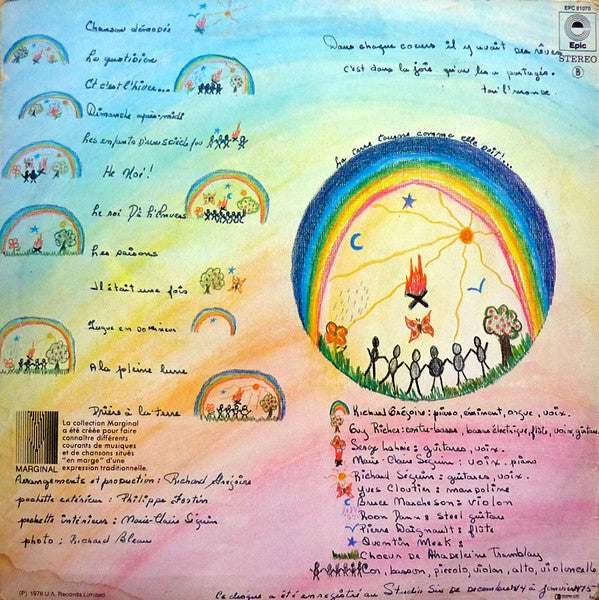 EPC 81070
Epic
STEREO
B
Chanson démodée
La quotidienne
Et c'est l'hiver...
Dimanche après-midi
Les enfants d'un siècle fou
He Noi!
Le roi D'à l'Envers
Les saisons
Il était une fois
A la pleine lune
Prière à la terre
Dans chaque coeurs il y avait des rêves
C'est dans la joie qu'on les a partagés.
La case tourne comme elle doit...
MARGINAL
La collection Marginal
a été créée pour faire
connaître différents
courants de musiques
et de chansons situés
"en marge" d'une
expression traditionnelle.
Arrangements et production: Richard Grégoire
pochette extérieur: Philippe Fortin
pochette intérieurs: Marie-Claire Séguin
photo: Richard Bleau
Richard Grégoire: piano, éminent, orgue, voix.
Guy Richer: contre-basse, basse électrique, flûte, voix, guitare
Serge Lahaie: guitares, voix.
Marie-Claire Séguin: voix, piano
Richard Séguin: guitares, voix.
Yves Cloutier: mandoline
Bruce Murcheson: violon
Steel guitare
Pierre Daignault: flûte
Quentin Meek:
Choeur de Madeleine Tremblay
Cor, basson, piccolo, violon, alto, violoncelle
(P) 1976 U.A. Records Limited
Ce disque a été enregistré au Studio Six de Decembre 74 à janvier 75